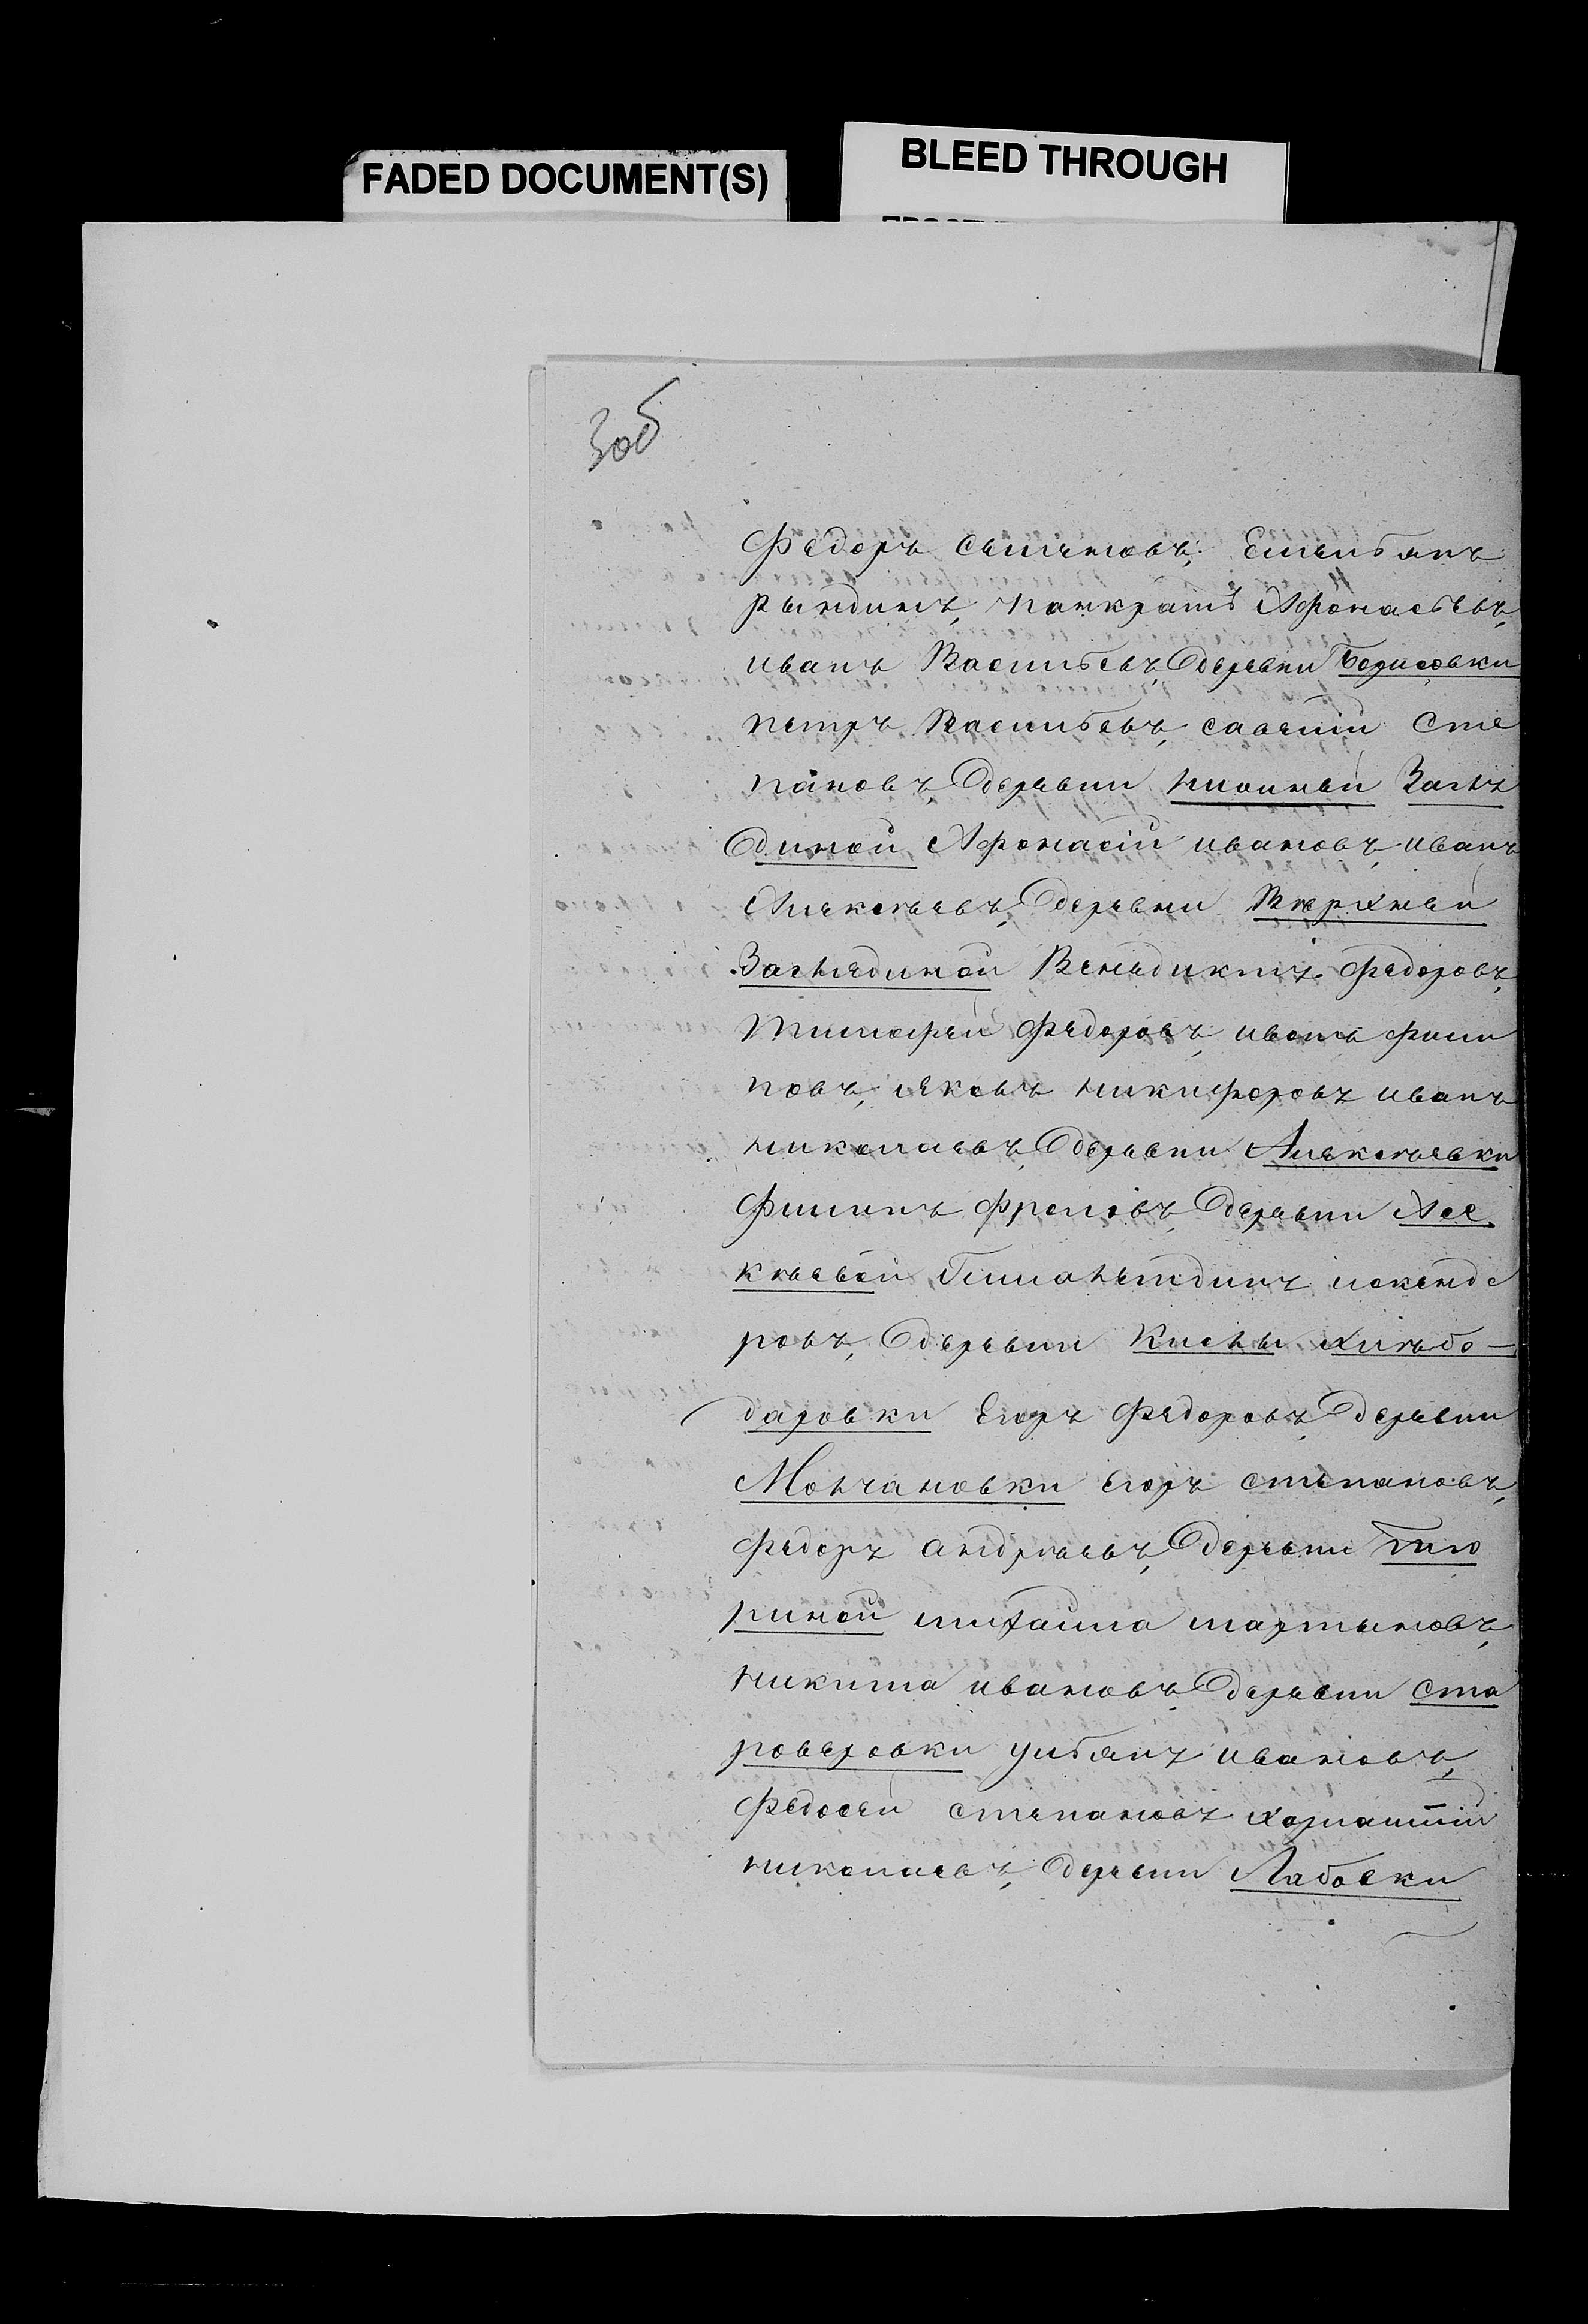 FADED DOCUMENT(S)
BLEED THROUGH
306
Федоръ Семеновъ, Емельянъ
Рындинъ, Панкратъ Афонасьевъ,
иванъ Васильевъ, деревни Борисовки
петръ Васильевъ, савелiй Сте
пановъ, деревни нижней Загля
диной Афонасiй ивановъ, иванъ
Алексѣевъ, деревни Верхней
Заглядиной Венедиктъ Федоровъ,
Тимофей Федоровъ, иванъ фили
повъ, Яковъ никифоровъ иванъ
николаевъ, деревни Алексѣевки
Филипъ Фроловъ, деревни Асе
кѣевой
ровъ, деревни Кислы Хлѣбо-
даровки Егоръ Федоровъ, деревни
Молчановки Егоръ степановъ,
федоръ андрѣевъ, деревни Тю
риной михайла мартыновъ,
никита ивановъ, деревни Ста
роверовки ульянъ ивановъ,
Федосей степановъ
николаевъ, деревни Лабоски